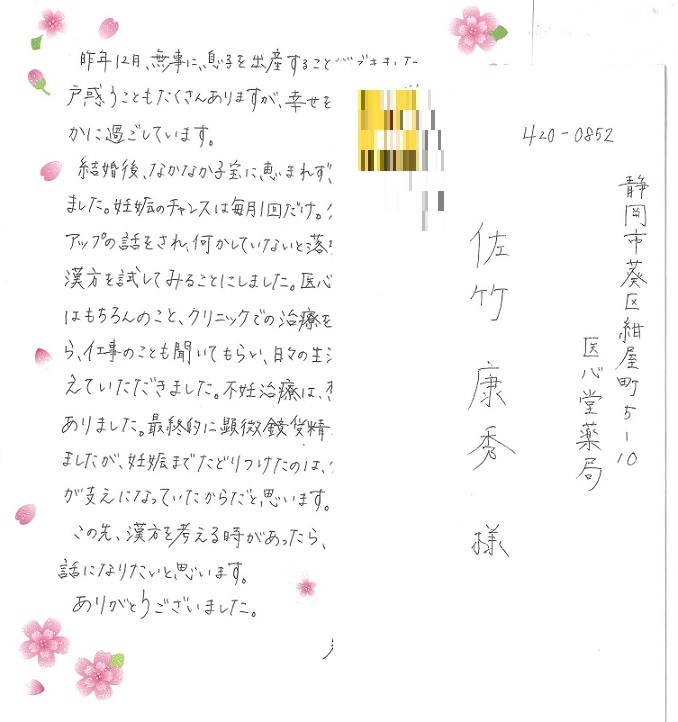 昨年12月、無事に、息子を出産すること
戸惑うこともたくさんありますが、幸せを
かに過ごしています。
結婚後、なかなか子宝に恵まれず、
ました。妊娠のチャンスは毎月1回だけ。
アップの話をされ、何かしていないと落
漢方を試してみることにしました。医心
はもちろんのこと、クリニックでの治療を
ら、仕事のことも聞いてもらい、日々の生活
えていただきました。不妊治療は、
ありました。最終的に顕微鏡受精
ましたが、妊娠までたどりつけたのは、
が支えになっていたからだと思います。
この先、漢方を考える時があったら、
話になりたいと思います。
ありがとうございました。
420-0852
静岡市葵区紺屋町5-10
医心堂薬局
佐竹 康秀 様